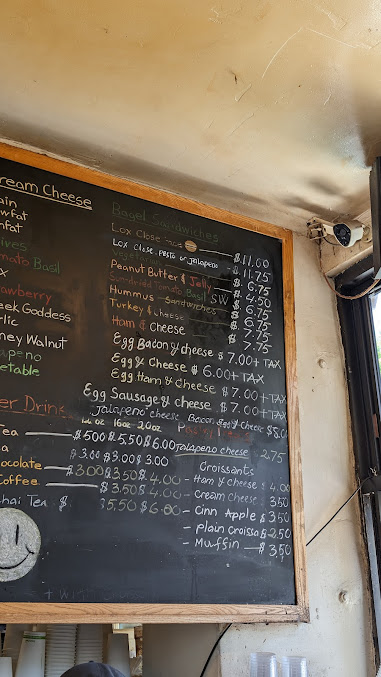 ream Cheese
ain
wfat
nfat
ives
omato Basil
x
rawberry
eek Goddess
rlic
ney Walnut
apeno
etable
Bagel Sandwiches
Lox Close face — $11.00
Lox Close, Pesto or Jalapeno - $11.75
Vegetarian $6.75
Peanut Butter & Jelly $4.50
Sundried Tomato Basil SW $6.75
Hummus Sandwiches $6.75
Turkey & Cheese $7.75
Ham & Cheese $7.75
Egg Bacon & cheese $7.00 + TAX
Egg & Cheese $6.00 + TAX
Egg Ham & Cheese $7.00 + TAX
Egg Sausage & cheese $7.00 + TAX
Jalapeno cheese Bacon Egg & Cheese $8.0
er Drink
12 oz 16oz 20oz
Tea — $5.00 $5.50 $6.00
a $3.00 $3.00 $3.00
ocolate — $3.00 $3.50 $4.00
Coffee — $3.50 $4.00
hai Tea $ $5.50 $6.00
Jalapeno cheese 2.75
Croissants
- Ham & cheese $4.00
- Cream Cheese $3.50
- Cinn Apple $3.50
- plain Croissa $2.50
- Muffin — $3.50